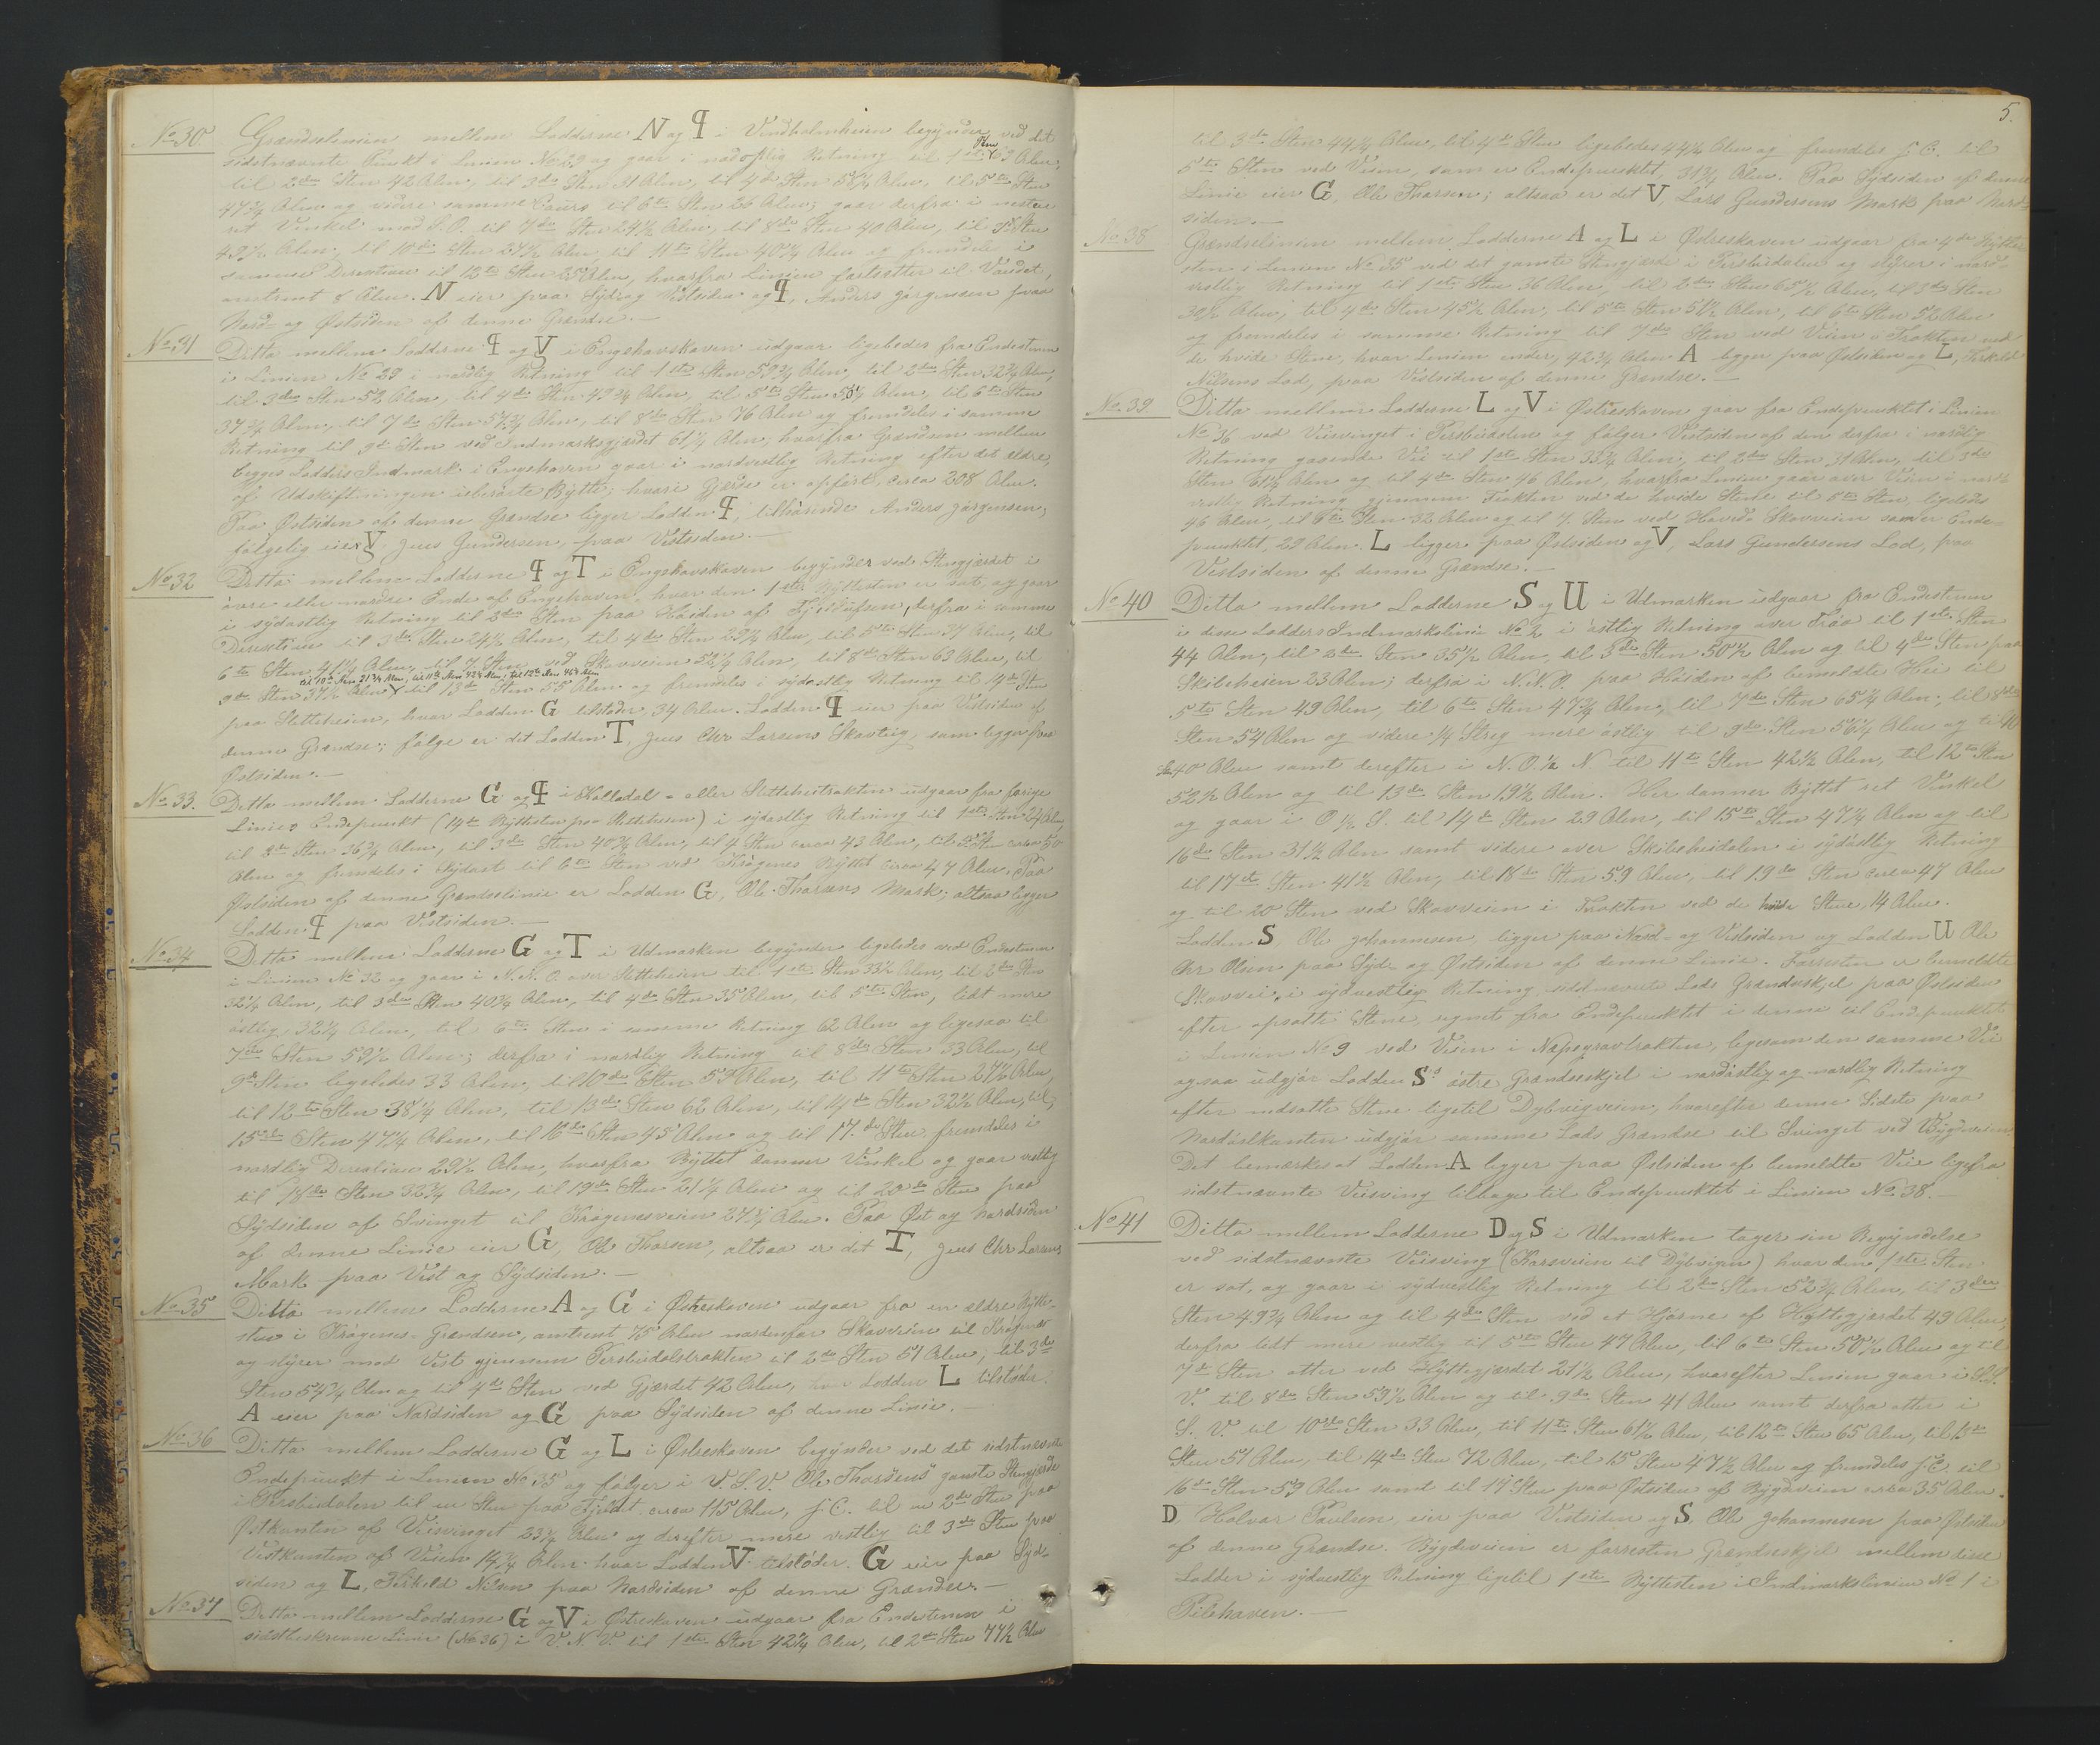 No 30 Grændselinien mellem Lodderne N og P i Vindholmheien begynder ved det
sidstnævnte Punkt i Linien No 29 og gaar i nordostlig Retning til 1ste Sten 63 Alen,
til 2den Sten 42 Alen, til 3die Sten 31 Alen, til 4de Sten 58¼ Alen, til 5te Sten
47¾ Alen og videre samme Cours til 6te Sten 26 Alen; gaar derfra i næsten
ret Vinkel mod S.O. til 7de Sten 24½ Alen, til 8de Sten 40 Alen, til 9de Sten
49½ Alen, til 10de Sten 27½ Alen, til 11te Sten 40¼ Alen og fremdeles i
samme Direction til 12te Sten 25 Alen, hvorfra Linien fortsætter til Vandet,
omtrent 8 Alen. N eier paa Syd og Vestsiden og P, Anders Jørgensen paa
Nord- og Østsiden af denne Grændse.—
No 31 Ditto mellem Lodderne P og V i Engehavskoven udgaar ligeledes fra Endestenen
i Linien No 29 i nordlig Retning til 1ste Sten 59¾ Alen, til 2den Sten 32¾ Alen,
til 3die Sten 52 Alen, til 4de Sten 49¾ Alen, til 5te Sten Alen, til 6te Sten
37¾ Alen, til 7de Sten 57¾ Alen, til 8de Sten 76 Alen og fremdeles i samme
Retning til 9de Sten ved Indmarksgjærdet 61¼ Alen; hvorfra Grændsen mellem
begges Lodders Indmark i Engehaven gaar i nordvestlig Retning efter det ældre,
af Udskiftningen uberørte Bytte; hvori Gjerde er opført, circa 208 Alen.
Paa Østsiden af denne Grændse ligger Lodden P, tilhørende Anders Jørgensen;
følgelig eier V, Jens Gundersen, paa Vestsiden.—
No 32 Ditto mellem Lodderne P og T i Engehavskoven begynder ved Stengjærdet i
øvre eller nordre Ende af Engehaven, hvor den 1ste Byttesten er sat, og gaar
i sydostlig Retning til 2den Sten paa Høiden af , derfra i samme
Direction til 3die Sten 24½ Alen, til 4de Sten 29¼ Alen, til 5te Sten 37 Alen, til
6te Sten 41½ Alen, til 7. Sten ved Skovveien 52¼ Alen, til 8de Sten 63 Alen, til
til 10de Sten 31¾ Alen, til 11te Sten 42¾ Alen, til 12te Sten 46¼ Alen
9de Sten 37½ Alen, til 13de Sten 35 Alen og fremdeles i sydostlig Retning til 14de Sten
paa Sletteheien, hvor Lodden G tilstøder, 34 Alen. Lodden P eier paa Vestsiden af
denne Grændse; følge er det Lodden T, Jens Chr Larsens Skovteig, som ligger paa
Østsiden.—
No 33. Ditto mellem Lodderne G og P i Holladal- eller Sletteheitrakten udgaar fra forige
Linies Endepunkt (14de Byttesten paa Sletteheien) i sydostlig Retning til 1ste Sten 24 Alen
til 2de Sten 36¾ Alen, til 3die Sten 40¾ Alen, til 4 Sten circa 43 Alen, til 5te Sten circa 50
Alen og fremdeles i Sydost til 6te Sten ved Krøgenes Byttet circa 47 Alen. Paa
Østsiden af denne Grændselinie er Lodden G, Ole Thorsens Mark; altsaa ligger
Lodden P paa Vestsiden.—
No 34 Ditto mellem Lodderne G og T i Udmarken begynder ligeledes ved Endestenen
i Linien No 32 og gaar i N.N.O. over Sletteheien til 1ste Sten 33½ Alen, til 2den Sten
32¼ Alen, til 3die Sten 40¾ Alen, til 4de Sten 35 Alen, til 5te Sten, lidt mere
østlig, 32¼ Alen, til 6te Sten i samme Retning 62 Alen og ligesaa til
7de Sten 59½ Alen; derfra i nordlig Retning til 8de Sten 33 Alen, til
9de Sten ligeledes 33 Alen, til 10de Sten 59 Alen, til 11te Sten 27½ Alen,
til 12te Sten 38¼ Alen, til 13de Sten 62 Alen, til 14de Sten 32½ Alen, til
15de Sten 47¼ Alen, til 16de Sten 45 Alen og til 17.de Sten fremdeles i
nordlig Direction 29½ Alen, hvorfra Byttet danner Vinkel og gaar vestlig
til 18de Sten 32¾ Alen, til 19de Sten 21¼ Alen og til 20de Sten paa
Sydsiden af Svinget til Krøgenesveien 27¾ Alen. Paa Øst og Nordsiden
af denne Linie eier G, Ole Thorsen, altsaa er det T, Jens Chr Larsens
Mark paa Vest og Sydsiden.—
No 35 Ditto mellem Lodderne A og G i Østreskoven udgaar fra en ældre Bytte-
sten i Krøgenes-Grændsen, omtrent 75 Alen nordenfor Skovveien til Krøgenes
og styrer mod Vest gjennem Tersbudalstrakten til 2de Sten 51 Alen, til 3die
Sten 54¾ Alen og til 4de Sten ved Gjærdet 42 Alen, hvor Lodden L tilstøder.
A eier paa Nordsiden og G paa Sydsiden af denne Linie.—
No 36 Ditto mellem Lodderne G og L i Østreskoven begynder ved det sidstnævnte
Endepunkt i Linien No 35 og følger i V.S.V. Ole Thorsens gamle Stengjærde
i Tersbudalen til en Sten paa Fjeldet circa 115 Alen, f.C. til en 2de Sten paa
Østkanten af Veisvinget 23¼ Alen og derefter mere vestlig til 3die Sten paa
Vestkanten af Veien 14¾ Alen hvor Lodden V tilstøder. G eier paa Syd-
siden og L, Terkeld Nilsen paa Nordsiden af denne Grændse.—
No 37 Ditto mellem Lodderne G og V i Østreskoven udgaar fra Endestenen i
sidstbeskrevne Linie (No 36) i V.N.V. til 1ste Sten 42¼ Alen, til 2de Sten 77½ Alen
5.
til 3die Sten 44¼ Alen, til 4de Sten ligeledes 44¼ Alen og fremdeles f.C. til
5te Sten ved Veien, som er Endepunktet, 31¾ Alen. Paa Sydsiden af denne
Linie eier G, Ole Thorsen; altsaa er det V, Lars Gundersens Mark paa Nord-
siden.—
No 38 Grændselinien mellem Lodderne A og L i Østreskoven udgaar fra 4de Bytte-
sten i Linien No 35 ved det gamle Stengjærde i Tersbudalen og styrer i nord-
vestlig Retning til 1ste Sten 36 Alen, til 2den Sten 65½ Alen, til 3die Sten
30½ Alen, til 4de Sten 45½ Alen, til 5te Sten 51½ Alen, til 6te Sten 52 Alen
og fremdeles i samme Retning til 7de Sten ved Veien i Trakten ved
de hvide Stene, hvor Linien ender, 42¾ Alen. A ligger paa Østsiden og L, Terkeld
Nilsens Lod, paa Vestsiden af denne Grændse.—
No 39 Ditto mellem Lodderne L og V i Østreskoven gaar fra Endepunktet i Linien
No 36 ved Veisvinget i Tersbudalen og følger Vestsiden af den derfra i nordlig
Retning gaaende Vei til 1ste Sten 33¼ Alen, til 2den Sten 31 Alen, til 3die
Sten 61½ Alen og til 4de Sten 46 Alen, hvorfra Linien gaar over Veien i nord-
vestlig Retning gjennem Trakten ved de hvide Stene til 5te Sten, ligeledes
46 Alen, til 6te Sten 32 Alen og til 7. Sten ved Skovveien som er Ende-
punktet, 29 Alen. L ligger paa Østsiden og V, Lars Gundersens Lod, paa
Vestsiden af denne Grændse.—
No 40 Ditto mellem Lodderne S og U i Udmarken udgaar fra Endestenen
i disse Lodders Indmarkslinie No 2 i østlig Retning over Traa til 1ste Sten
44 Alen, til 2den Sten 35½ Alen, til 3die Sten 50½ Alen og til 4de Sten paa
Skibeheien 23 Alen; derfra i N.N.O. paa Høiden af bemeldte Hei til
5te Sten 49 Alen, til 6te Sten 47¾ Alen, til 7de Sten 65¼ Alen, til 8de
Sten 54 Alen og videre ¼ Streg mere østlig til 9de Sten 56¼ Alen og til 10
de 40 Alen samt derefter i N.O.½ N. til 11te Sten 42½ Alen, til 12te Sten
52½ Alen og til 13de Sten 19½ Alen. Her danner Byttet ret Vinkel
og gaar i O ½ S. til 14de Sten 29 Alen, til 15de Sten 47¼ Alen og til
16de Sten 31½ Alen samt videre over Skibeheidalen i sydostlig Retning
til 17de Sten 41½ Alen, til 18de Sten 59 Alen, til 19de Sten circa 47 Alen
og til 20 Sten ved Skovveien i Trakten ved de hvide Stene, 14 Alen.
Lodden S, Ole Johannesen, ligger paa Nord- og Vestsiden og Lodden U Ole
Chr Olsen paa Syd- og Østsiden af denne Linie. Forresten er bemeldte
Skovvei, i sydvestlig Retning, sidstnævnte Lods Grændseskjel paa Østsiden
efter opsatte Stene, regnet fra Endepunktet i denne til Endepunktet
i Linien No 9 ved Veien i Næpegravtrakten, ligesom den samme Vei
ogsaa udgjør Lodden S's østre Grændseskjel i nordostlig og nordlig Retning
efter nedsatte Stene ligetil Dybvigveien, hvorefter denne Sidste paa
Nordøstkanten udgjør samme Lods Grændse til Svinget ved Bygdeveien.
Det bemærkes at Lodden A ligger paa Østsiden af bemeldte Vei ligefra
sidstnævnte Veisving tilbage til Endepunktet i Linien No 38.—
No 41 Ditto mellem Lodderne D og S i Udmarken tager sin Begyndelse
ved sidstnævnte Veisving (Korsveien til Dybvigen) hvor den 1ste Sten
er sat, og gaar i sydvestlig Retning til 2den Sten 52¾ Alen, til 3die
Sten 49¾ Alen og til 4de Sten ved et Hjørne af Hyttegjærdet 49 Alen,
derfra lidt mere vestlig til 5te Sten 47 Alen, til 6te Sten 50½ Alen og til
7de Sten atter ved Hyttegjærdet 21½ Alen, hvorefter Linien gaar i S.S.
V. til 8de Sten 59½ Alen og til 9de Sten 41 Alen samt derfra atter i
S.V. til 10de Sten 33 Alen, til 11te Sten 61½ Alen, til 12te Sten 65 Alen, til 13de
Sten 51 Alen, til 14de Sten 72 Alen, til 15 Sten 47½ Alen og fremdeles f.C. til
16de Sten 59 Alen samt til 17 Sten paa Østsiden af Bygdveien circa 35 Alen.
D Halvor Paulsen, eier paa Vestsiden og S, Ole Johannesen paa Østsiden
af denne Grændse. Bygdeveien er forresten Grændseskjel mellem disse
Lodder i sydvestlig Retning ligetil 1ste Byttesten i Indmarkslinien No 1 i
Pilehaven.—